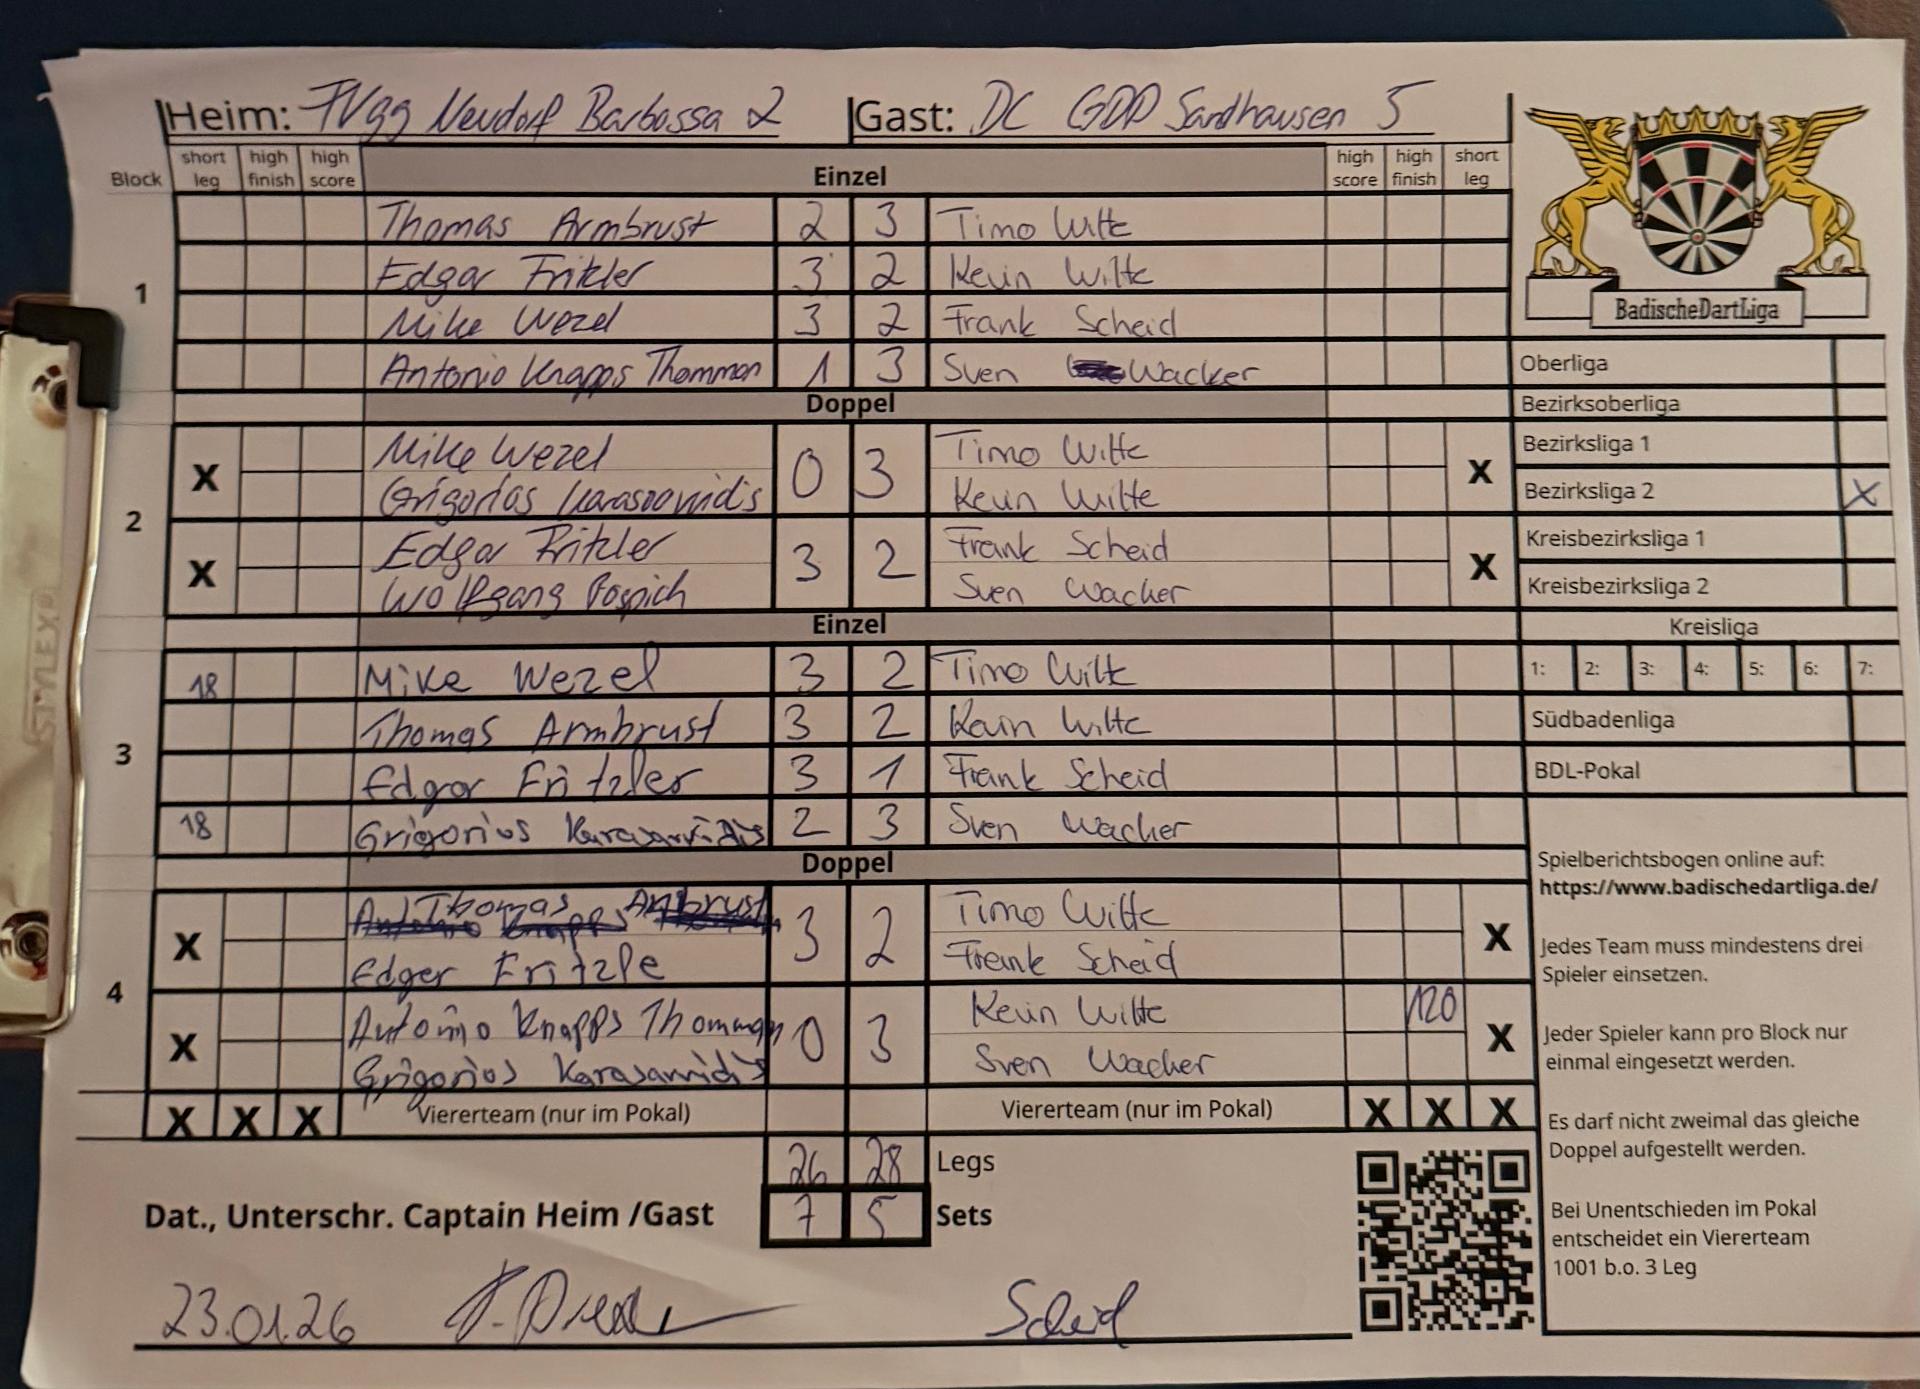 Heim: FVgg Neudorf Barbossa 2 Gast: DC GDD Sandhausen 5
Block short leg high finish high score Einzel high score high finish short leg
1
Thomas Armbrust 2 3 Timo Witte
Edgar Fritzler 3 2 Kevin Witte
Mike Wezel 3 2 Frank Scheid
Antonio Knapps Thommen 1 3 Sven Wacker
Doppel
2
X Mike Wezel 0 3 Timo Witte X
Grigorios Kevin Witte
X Edga Fritzler 3 2 Frank Scheid X
Wolfgang Pospich Sven Wacker
Einzel
3
18 Mike Wezel 3 2 Timo Witte
Thomas Armbrust 3 2 Kevin Witte
Edgar Fritzler 3 1 Frank Scheid
18 Grigorius 2 3 Sven Wacker
Doppel
4
X Thomas Anbrust 3 2 Timo Witte X
Edger Fritzle Frank Scheid
X Antonio Knapps Thommen 0 3 Kevin Witte 120 X
Grigorios Sven Wacker
X X X Viererteam (nur im Pokal) Viererteam (nur im Pokal) X X X
26 28 Legs
Dat., Unterschr. Captain Heim /Gast 7 5 Sets
23.01.26 Scheid
BadischeDartLiga
Oberliga
Bezirksoberliga
Bezirksliga 1
Bezirksliga 2 X
Kreisbezirksliga 1
Kreisbezirksliga 2
Kreisliga
1: 2: 3: 4: 5: 6: 7:
Südbadenliga
BDL-Pokal
Spielberichtsbogen online auf:
https://www.badischedartliga.de/
Jedes Team muss mindestens drei
Spieler einsetzen.
Jeder Spieler kann pro Block nur
einmal eingesetzt werden.
Es darf nicht zweimal das gleiche
Doppel aufgestellt werden.
Bei Unentschieden im Pokal
entscheidet ein Viererteam
1001 b.o. 3 Leg
STYLEX